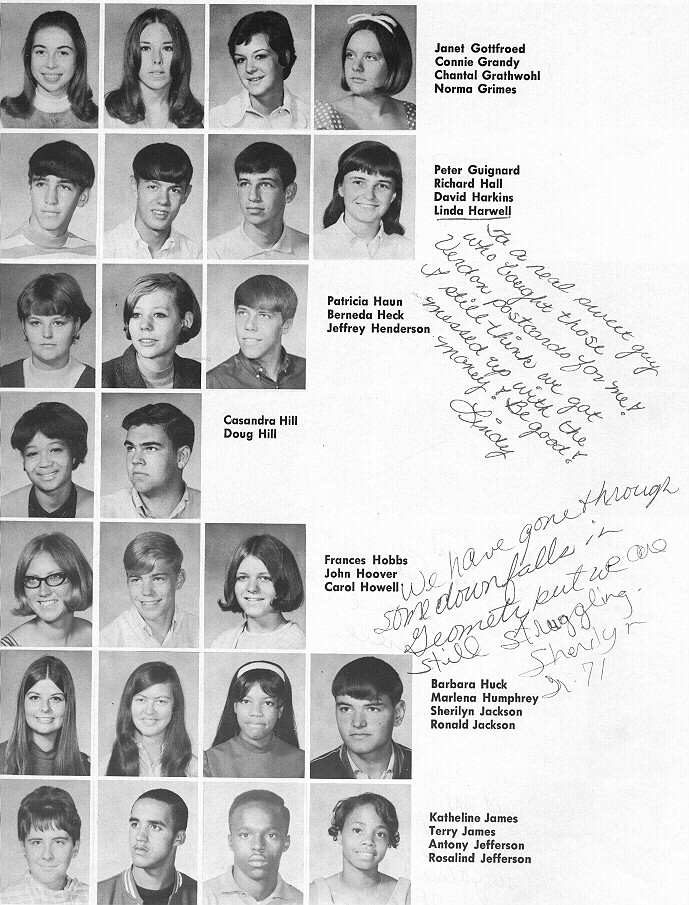 Janet Gottfroed
Connie Grandy
Chantal Grathwohl
Norma Grimes
Peter Guignard
Richard Hall
David Harkins
Linda Harwell
To a real sweet guy
who bought those
Verdon postcards for me!
I still think we got
messed up with the
money! Be good!
Lindy
Patricia Haun
Berneda Heck
Jeffrey Henderson
Casandra Hill
Doug Hill
We have gone through
some downfalls in
Geometry but we are
still struggling.
Sherilyn
Jr. 71
Frances Hobbs
John Hoover
Carol Howell
Barbara Huck
Marlena Humphrey
Sherilyn Jackson
Ronald Jackson
Katheline James
Terry James
Antony Jefferson
Rosalind Jefferson